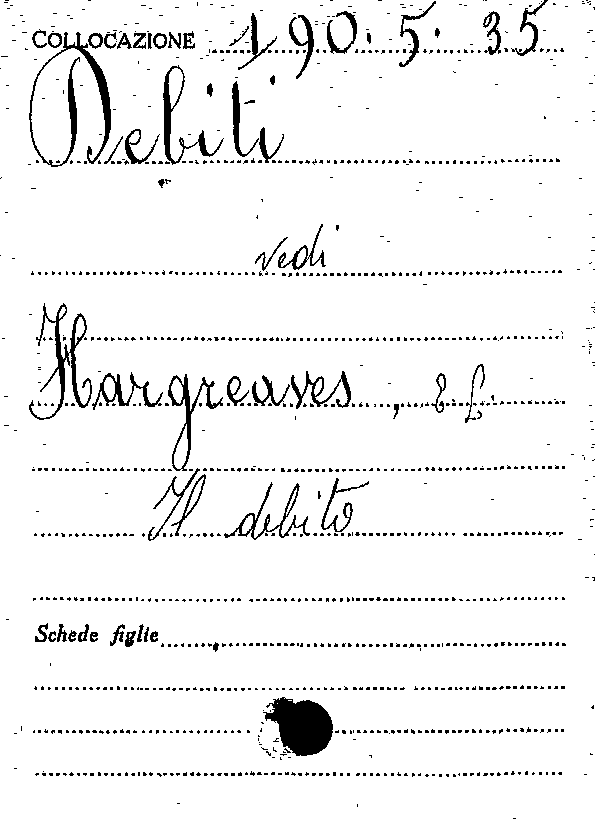 COLLOCAZIONE 190. 5. 35
Debiti
vedi
Hargreaves, E. L.
Il debito
Schede figlie